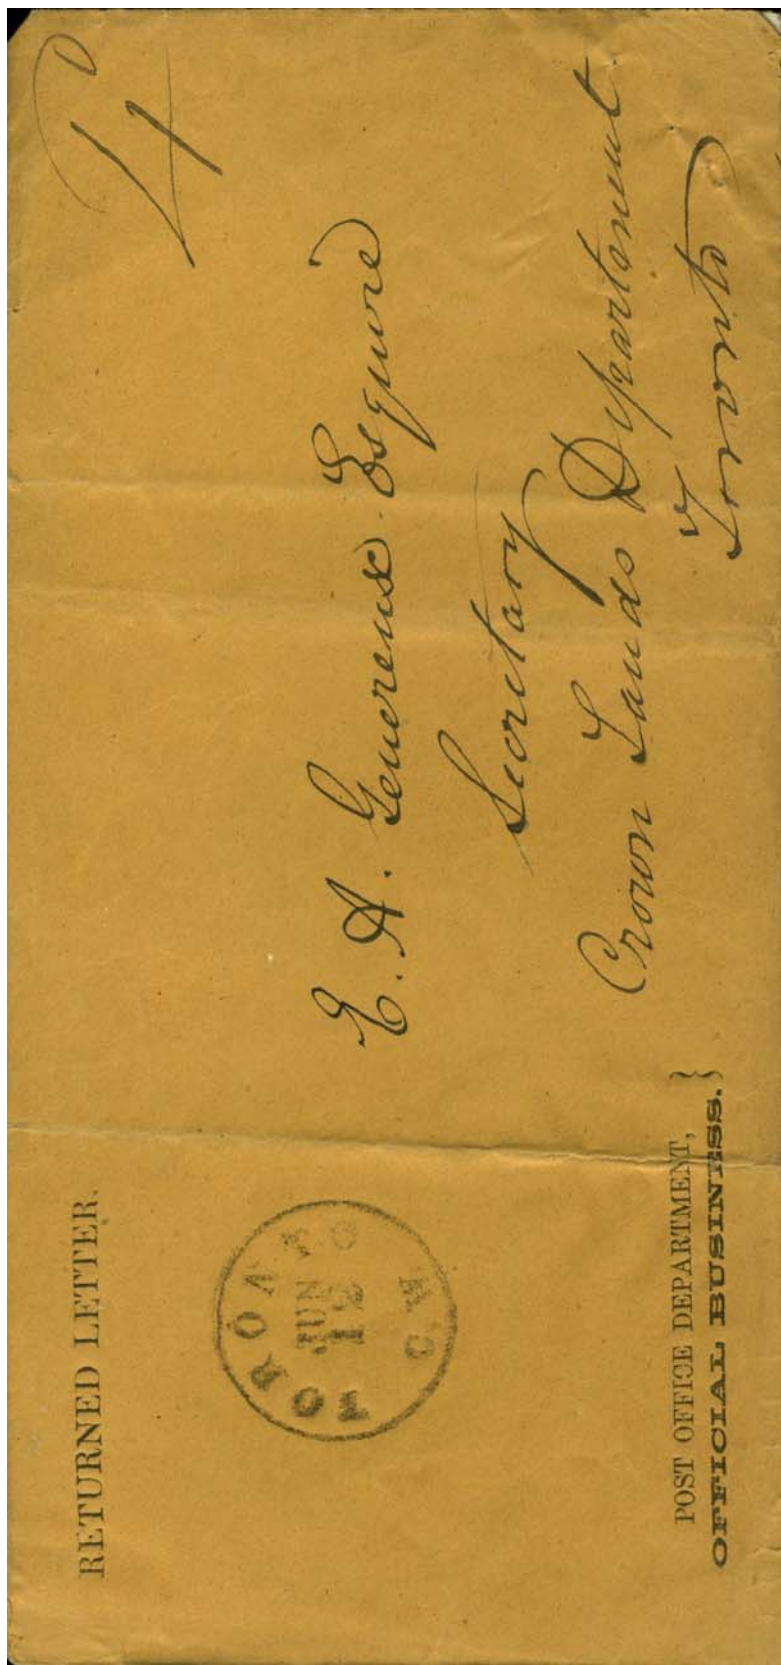 RETURNED LETTER.
TORONTO C.W.
JUN
12
E. A. Genereux Esquire
Secretary
Crown Lands Department
Toronto
POST OFFICE DEPARTMENT,
OFFICIAL BUSINESS.